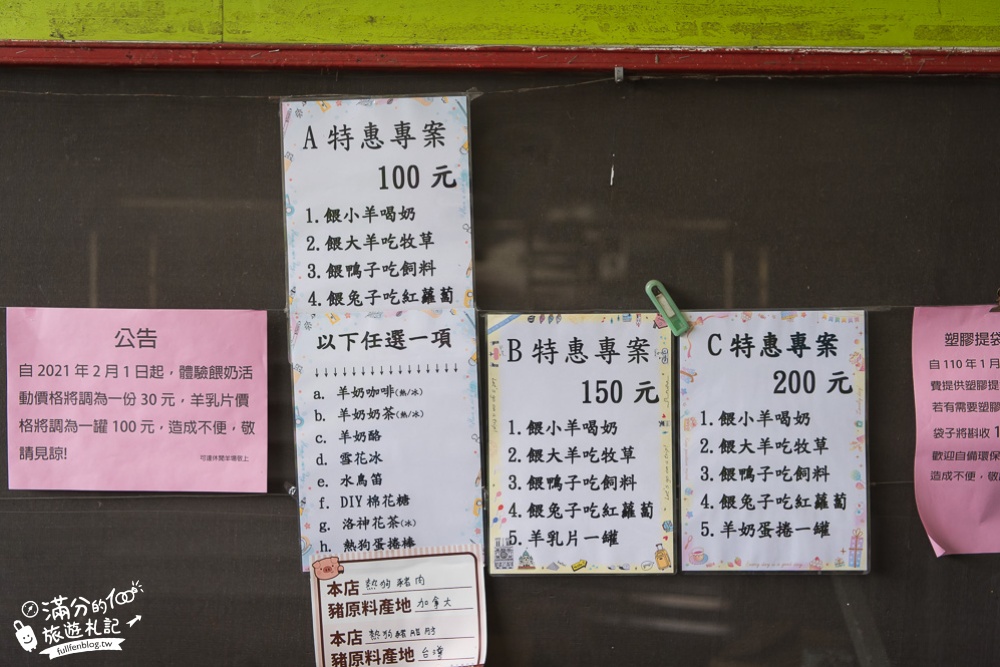 A 特惠專案
100 元
1. 餵小羊喝奶
2. 餵大羊吃牧草
3. 餵鴨子吃飼料
4. 餵兔子吃紅蘿蔔
以下任選一項
a. 羊奶咖啡(熱/冰)
b. 羊奶奶茶(熱/冰)
c. 羊奶酪
d. 雪花冰
e. 水鳥笛
f. DIY 棉花糖
g. 洛神花茶(冰)
h. 熱狗蛋捲棒
本店 熱狗豬肉
豬原料產地 加拿大
本店 熱狗豬脂肪
豬原料產地 台灣
公告
自 2021 年 2 月 1 日起，體驗餵奶活
動價格將調為一份 30 元，羊乳片價
格將調為一罐 100 元，造成不便，敬
請見諒!
可達休閒羊場敬上
B 特惠專案
150 元
1. 餵小羊喝奶
2. 餵大羊吃牧草
3. 餵鴨子吃飼料
4. 餵兔子吃紅蘿蔔
5. 羊乳片一罐
C 特惠專案
200 元
1. 餵小羊喝奶
2. 餵大羊吃牧草
3. 餵鴨子吃飼料
4. 餵兔子吃紅蘿蔔
5. 羊奶蛋捲一罐
塑膠提袋
自 110 年 1 月
費提供塑膠提
若有需要塑膠
袋子將斟收 1
歡迎自備環保
造成不便，敬
滿分的
旅遊札記
fullfenblog.tw